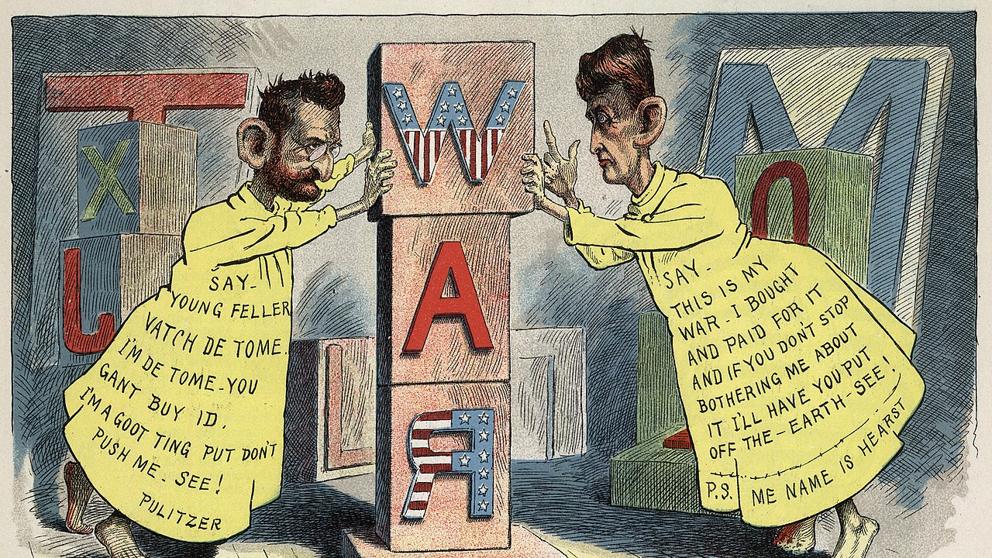 T
X
J
W
A
R
M
SAY-
YOUNG FELLER
VATCH DE TOME.
I'M DE TOME-YOU
GANT BUY ID.
I'M A GOOT TING PUT DON'T
PUSH ME. SEE!
PULITZER
SAY-
THIS IS MY
WAR. I BOUGHT
AND PAID FOR IT
AND IF YOU DON'T STOP
BOTHERING ME ABOUT
IT I'LL HAVE YOU PUT
OFF THE-EARTH-SEE!
P.S. ME NAME IS HEARST